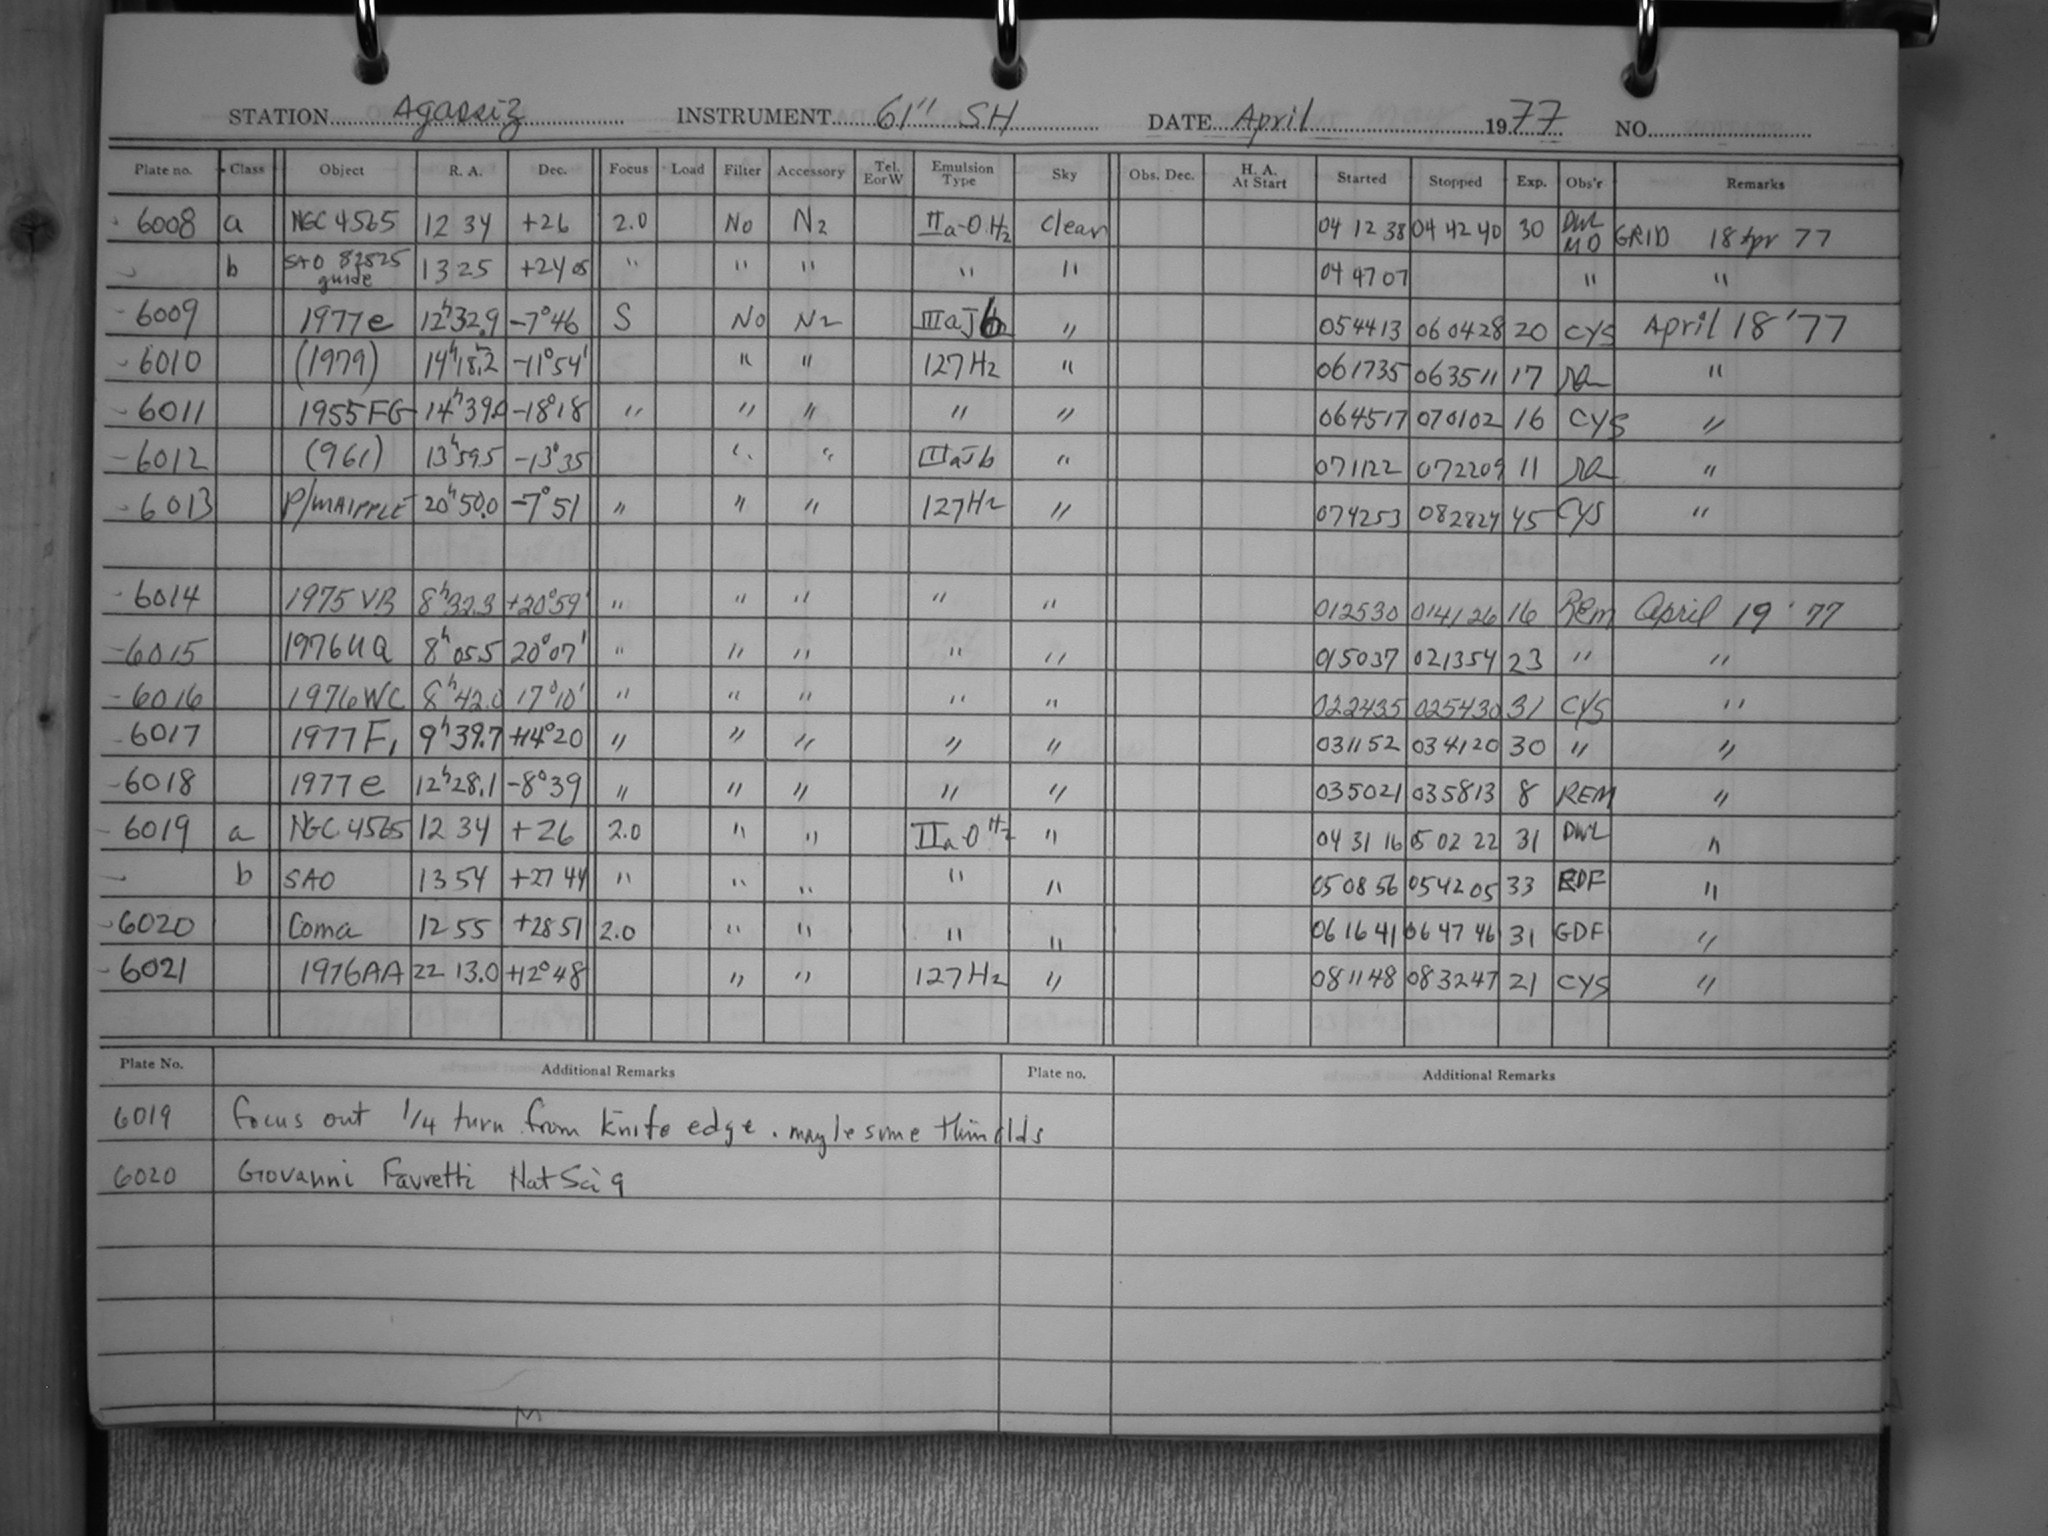 STATION Agassiz INSTRUMENT 61" SH DATE April 1977 NO.
Plate no. Class Object R. A. Dec. Focus Load Filter Accessory Tel. E or W Emulsion Type Sky Obs. Dec. H. A. At Start Started Stopped Exp. Obs'r Remarks
6008 a NGC 4565 12 34 +26 2.0 No N2 IIa-O H2 Clear 04 12 38 04 42 40 30 DWL MO GRID 18 Apr 77
b SAO 82525 guide 13 25 +24 05 " " " " " 04 47 07 " "
6009 1977e 12h32.9 -7°46 S No N2 IIIaJb " 054413 060428 20 CYS April 18 '77
6010 (1979) 14h18.2 -11°54' " " 127H2 " 061735 063511 17 "
6011 1955FG 14h39.0 -18°18 " " " " " 064517 070102 16 CYS "
6012 (961) 13h59.5 -13°35 " " IIIaJb " 071122 072209 11 "
6013 20h50.0 -7°51 " " " 127H2 " 074253 082824 45 CYS "
6014 1975 VB 8h32.3 +20°59' " " " " " 012530 014126 16 REM April 19 '77
6015 1976UQ 8h05.5 20°07' " " " " " 015037 021354 23 " "
6016 1976WC 8h42.0 17°10' " " " " " 022435 025430 31 CYS "
6017 1977F1 9h39.7 +14°20 " " " " " 031152 034120 30 " "
6018 1977e 12h28.1 -8°39 " " " " " 035021 035813 8 REM "
6019 a NGC 4565 12 34 +26 2.0 " " IIa-O H2 " 04 31 16 05 02 22 31 DWL "
b SAO 13 54 +27 44 " " " " " 05 08 56 05 42 05 33 "
6020 Coma 12 55 +28 51 2.0 " " " " 06 16 41 06 47 46 31 GDF "
6021 1976AA 22 13.0 +12°48 " " 127H2 " 081148 083247 21 CYS "
Plate No. Additional Remarks Plate no. Additional Remarks
6019 Focus out 1/4 turn from knife edge. maybe some thin clds
6020 Giovanni Favretti Nat Sci 9
M